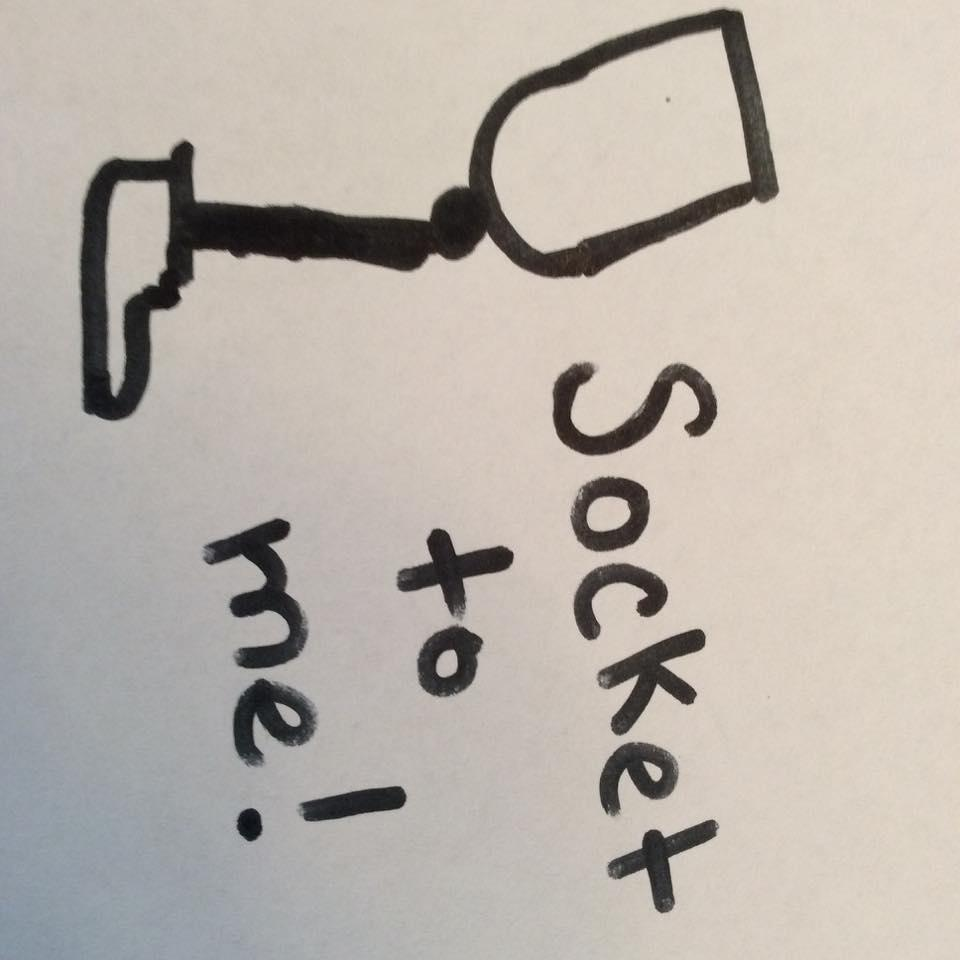 Socket
to
me!